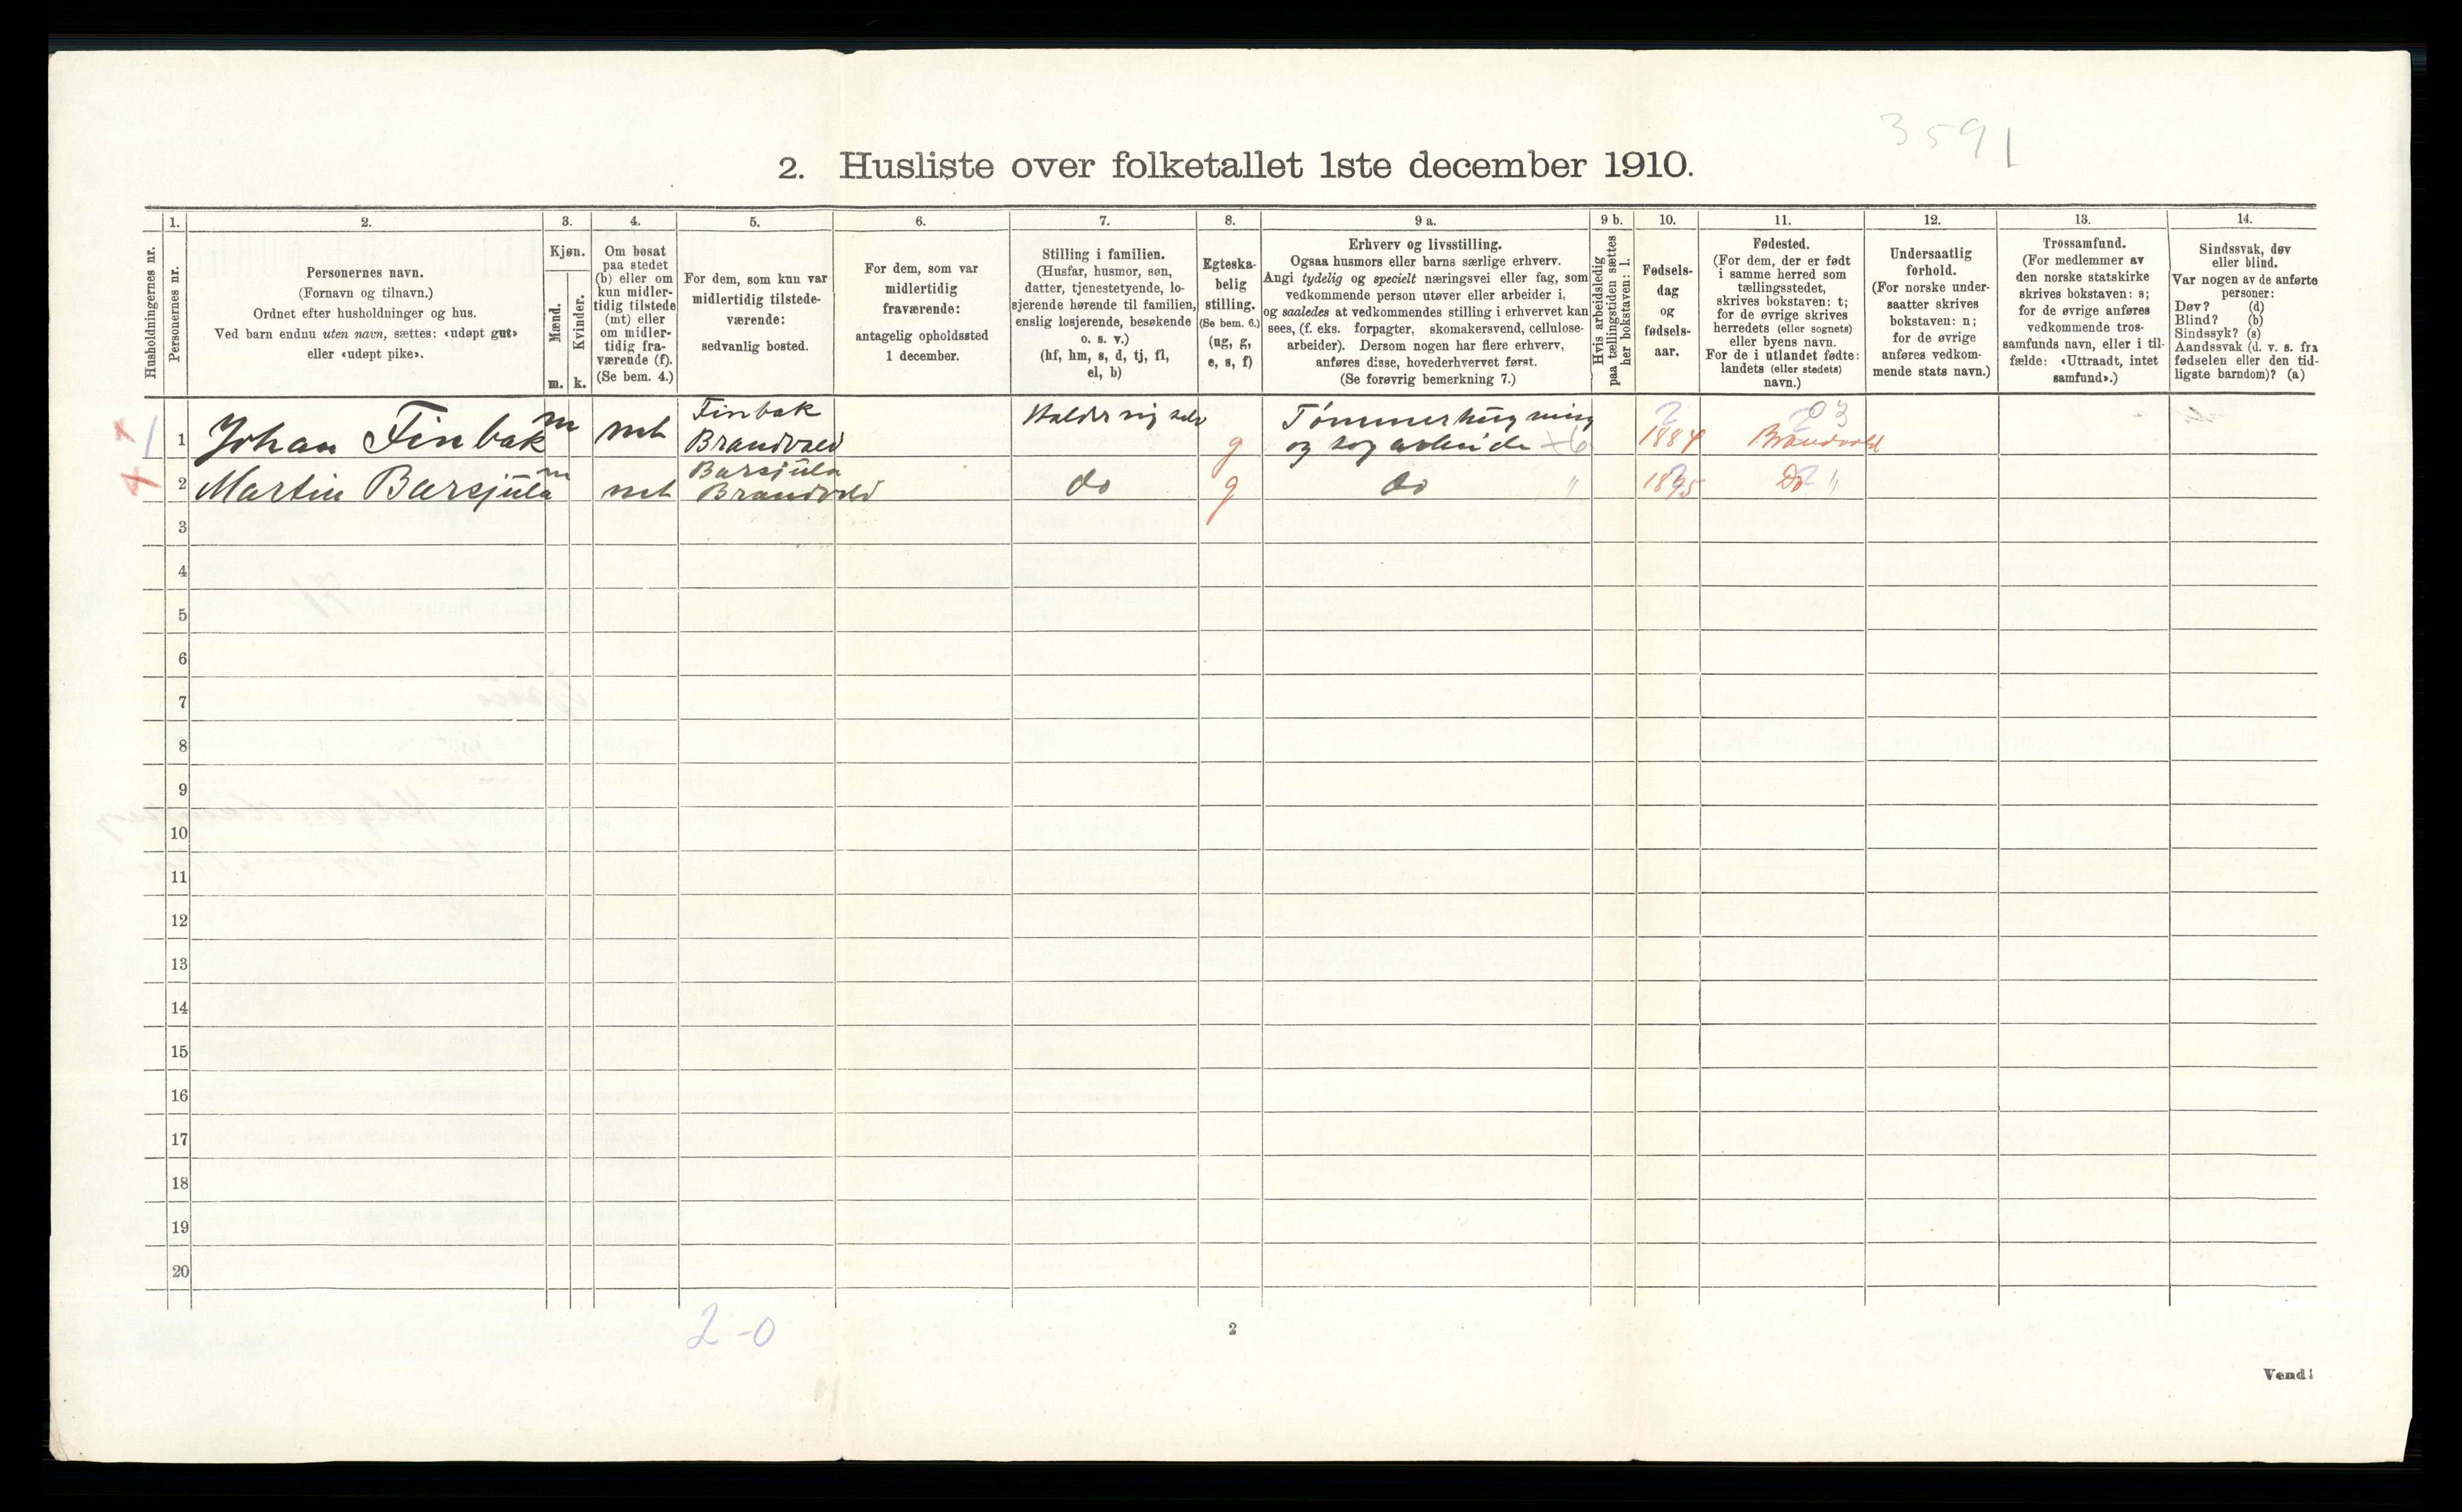 3591
2. Husliste over folketallet 1ste december 1910.
Husholdningernes nr.
1.
Personernes nr.
2.
Personernes navn.
(Fornavn og tilnavn.)
Ordnet efter husholdninger og hus.
Ved barn endnu uten navn, sættes: «udøpt gut»
eller «udøpt pike».
3.
Kjøn.
Mænd.
Kvinder.
m. k.
4.
Om bosat
paa stedet
(b) eller om
kun midler-
tidig tilstede
(mt) eller
om midler-
tidig fra-
værende (f).
(Se bem. 4.)
5.
For dem, som kun var
midlertidig tilstede-
værende:
sedvanlig bosted.
6.
For dem, som var
midlertidig
fraværende:
antagelig opholdssted
1 december.
7.
Stilling i familien.
(Husfar, husmor, søn,
datter, tjenestetyende, lo-
sjerende hørende til familien,
enslig losjerende, besøkende
o. s. v.)
(hf, hm, s, d, tj, fl,
el, b)
8.
Egteska-
belig
stilling.
(Se bem. 6.)
(ug, g,
e, s, f)
9 a.
Erhverv og livsstilling.
Ogsaa husmors eller barns særlige erhverv.
Angi tydelig og specielt næringsvei eller fag, som
vedkommende person utøver eller arbeider i,
og saaledes at vedkommendes stilling i erhvervet kan
sees, (f. eks. forpagter, skomakersvend, cellulose-
arbeider). Dersom nogen har flere erhverv,
anføres disse, hovederhvervet først.
(Se forøvrig bemerkning 7.)
9 b.
Hvis arbeidsledig
paa tællingstiden sættes
her bokstaven: l.
10.
Fødsels-
dag
og
fødsels-
aar.
11.
Fødested.
(For dem, der er født
i samme herred som
tællingsstedet,
skrives bokstaven: t;
for de øvrige skrives
herredets (eller sognets)
eller byens navn.
For de i utlandet fødte:
landets (eller stedets)
navn.)
12.
Undersaatlig
forhold.
(For norske under-
saatter skrives
bokstaven: n;
for de øvrige
anføres vedkom-
mende stats navn.)
13.
Trossamfund.
(For medlemmer av
den norske statskirke
skrives bokstaven: s;
for de øvrige anføres
vedkommende tros-
samfunds navn, eller i til-
fælde: «Uttraadt, intet
samfund».)
14.
Sindssvak, døv
eller blind.
Var nogen av de anførte
personer:
Døv? (d)
Blind? (b)
Sindssyk? (s)
Aandssvak (d. v. s. fra
fødselen eller den tid-
ligste barndom)? (a)
x 1 1 Johan Finbak m mt Finbak
Brandvold Holder sig selv g Tømmerhugning
og sog arbeide x6 2 1884 2 03 Brandvold
x 2 Martin Barsjula m mt Barsjula
Brandvold do g do " 1895 Do 2 "
3
4
5
6
7
8
9
10
11
12
13
14
15
16
17
18
19
20
2-0
2
Vend!